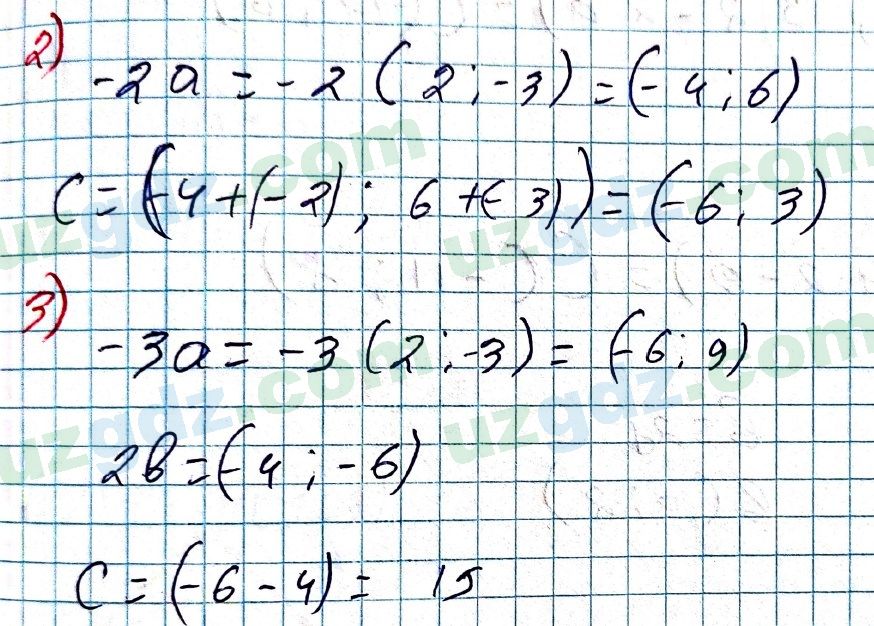 2)
-2a = -2 (2 ; -3) = (-4 ; 6)
C = (-4 + (-2) ; 6 + (-3)) = (-6 ; 3)
3)
-3a = -3 (2 ; -3) = (-6 ; 9)
2b = (-4 ; -6)
C = (-6 - 4) = 15
uzgdz.com
uzgdz.com
uzgdz.com
uzgdz.com